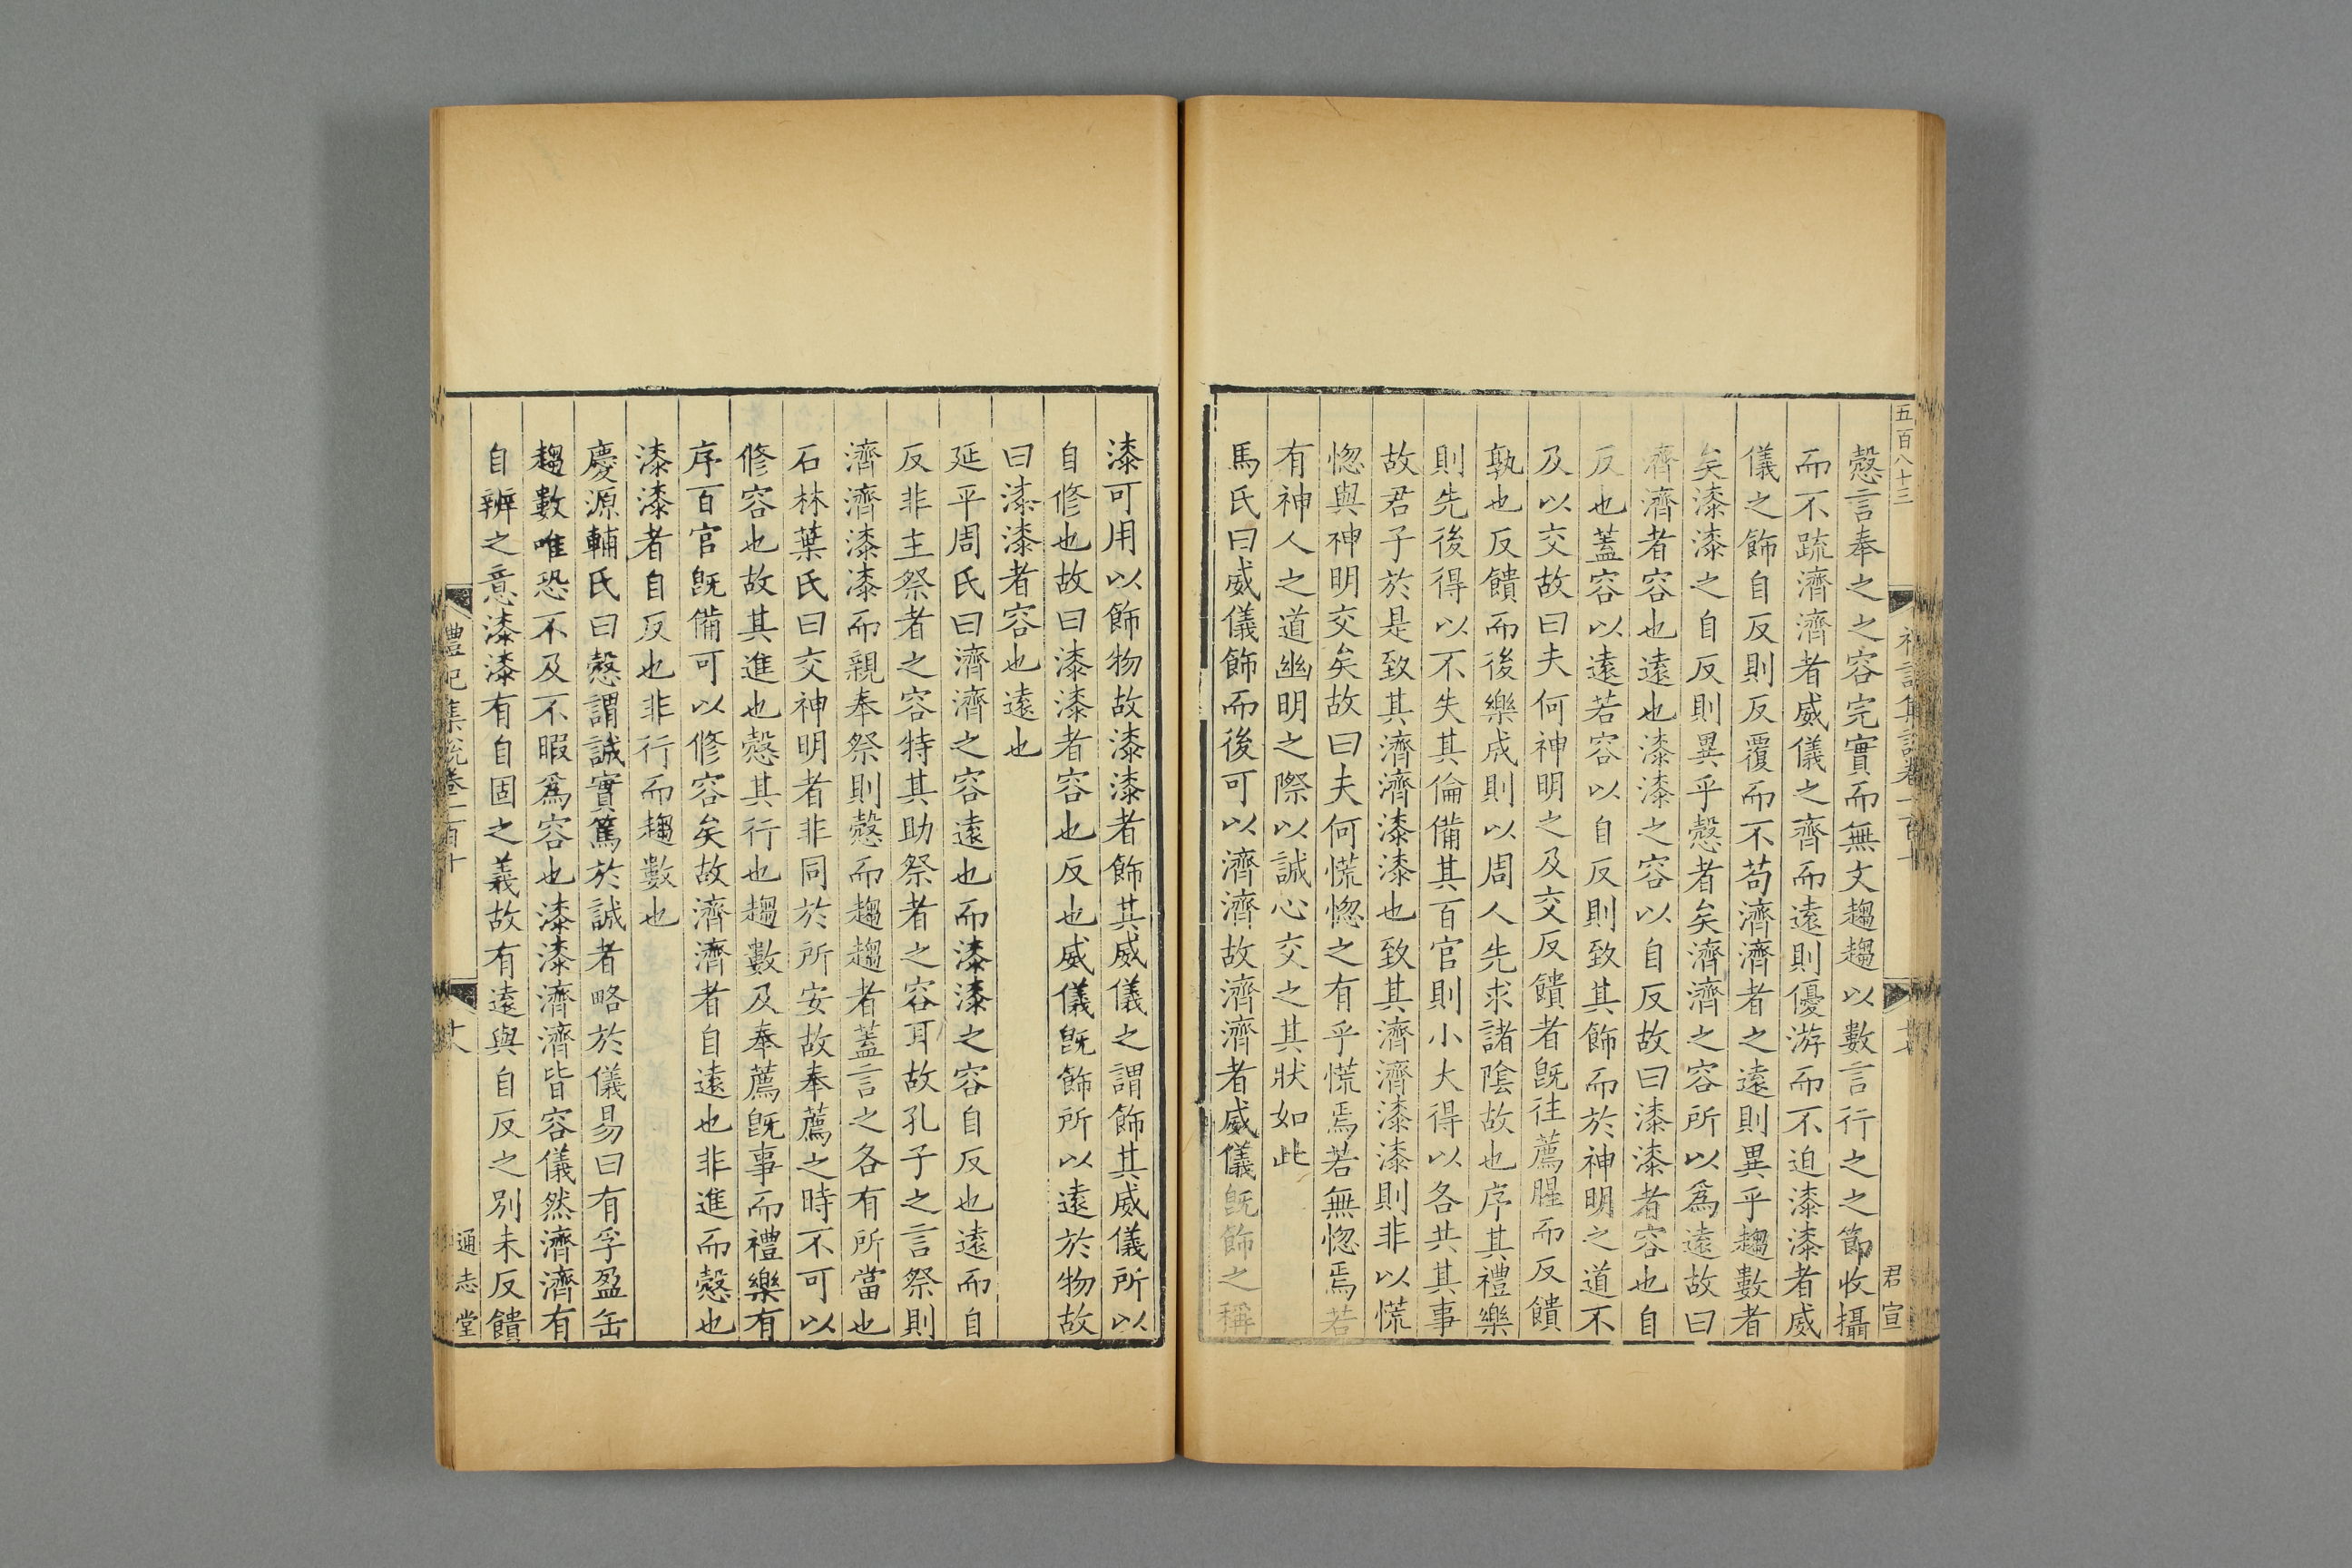 五百八十三
君宣
慤言奉之之容完實而無文趨趨以數言行之之節收攝
而不疏濟濟者威儀之齊而遠則優游而不迫漆漆者威
儀之飾自反則反覆而不苟濟濟者之遠則異乎趨數者
矣漆漆之自反則異乎慤者矣濟濟之容所以爲遠故曰
濟濟者容也遠也漆漆之容以自反故曰漆漆者容也自
反也蓋容以遠若容以自反則致其飾而於神明之道不
及以交故曰夫何神明之及交反饋者旣往薦腥而反饋
孰也反饋而後樂成則以周人先求諸陰故也序其禮樂
則先後得以不失其倫備其百官則小大得以各共其事
故君子於是致其濟濟漆漆也致其濟濟漆漆則非以慌
惚與神明交矣故曰夫何慌惚之有乎慌焉若無惚焉若
有神人之道幽明之際以誠心交之其狀如此
馬氏曰威儀飾而後可以濟濟故濟濟者威儀旣飾之稱
漆可用以飾物故漆漆者飾其威儀之謂飾其威儀所以
自修也故曰漆漆者容也反也威儀旣飾所以遠於物故
曰漆漆者容也遠也
延平周氏曰濟濟之容遠也而漆漆之容自反也遠而自
反非主祭者之容特其助祭者之容耳故孔子之言祭則
濟濟漆漆而親奉祭則慤而趨趨者蓋言之各有所當也
石林葉氏曰交神明者非同於所安故奉薦之時不可以
修容也故其進也慤其行也趨數及奉薦旣事而禮樂有
序百官旣備可以修容矣故濟濟者自遠也非進而慤也
漆漆者自反也非行而趨數也
慶源輔氏曰慤謂誠實篤於誠者略於儀易曰有孚盈缶
趨數唯恐不及不暇爲容也漆漆濟濟皆容儀然濟濟有
自辨之意漆漆有自固之義故有遠與自反之別未反饋
禮記集說卷一百十
十八
通志堂